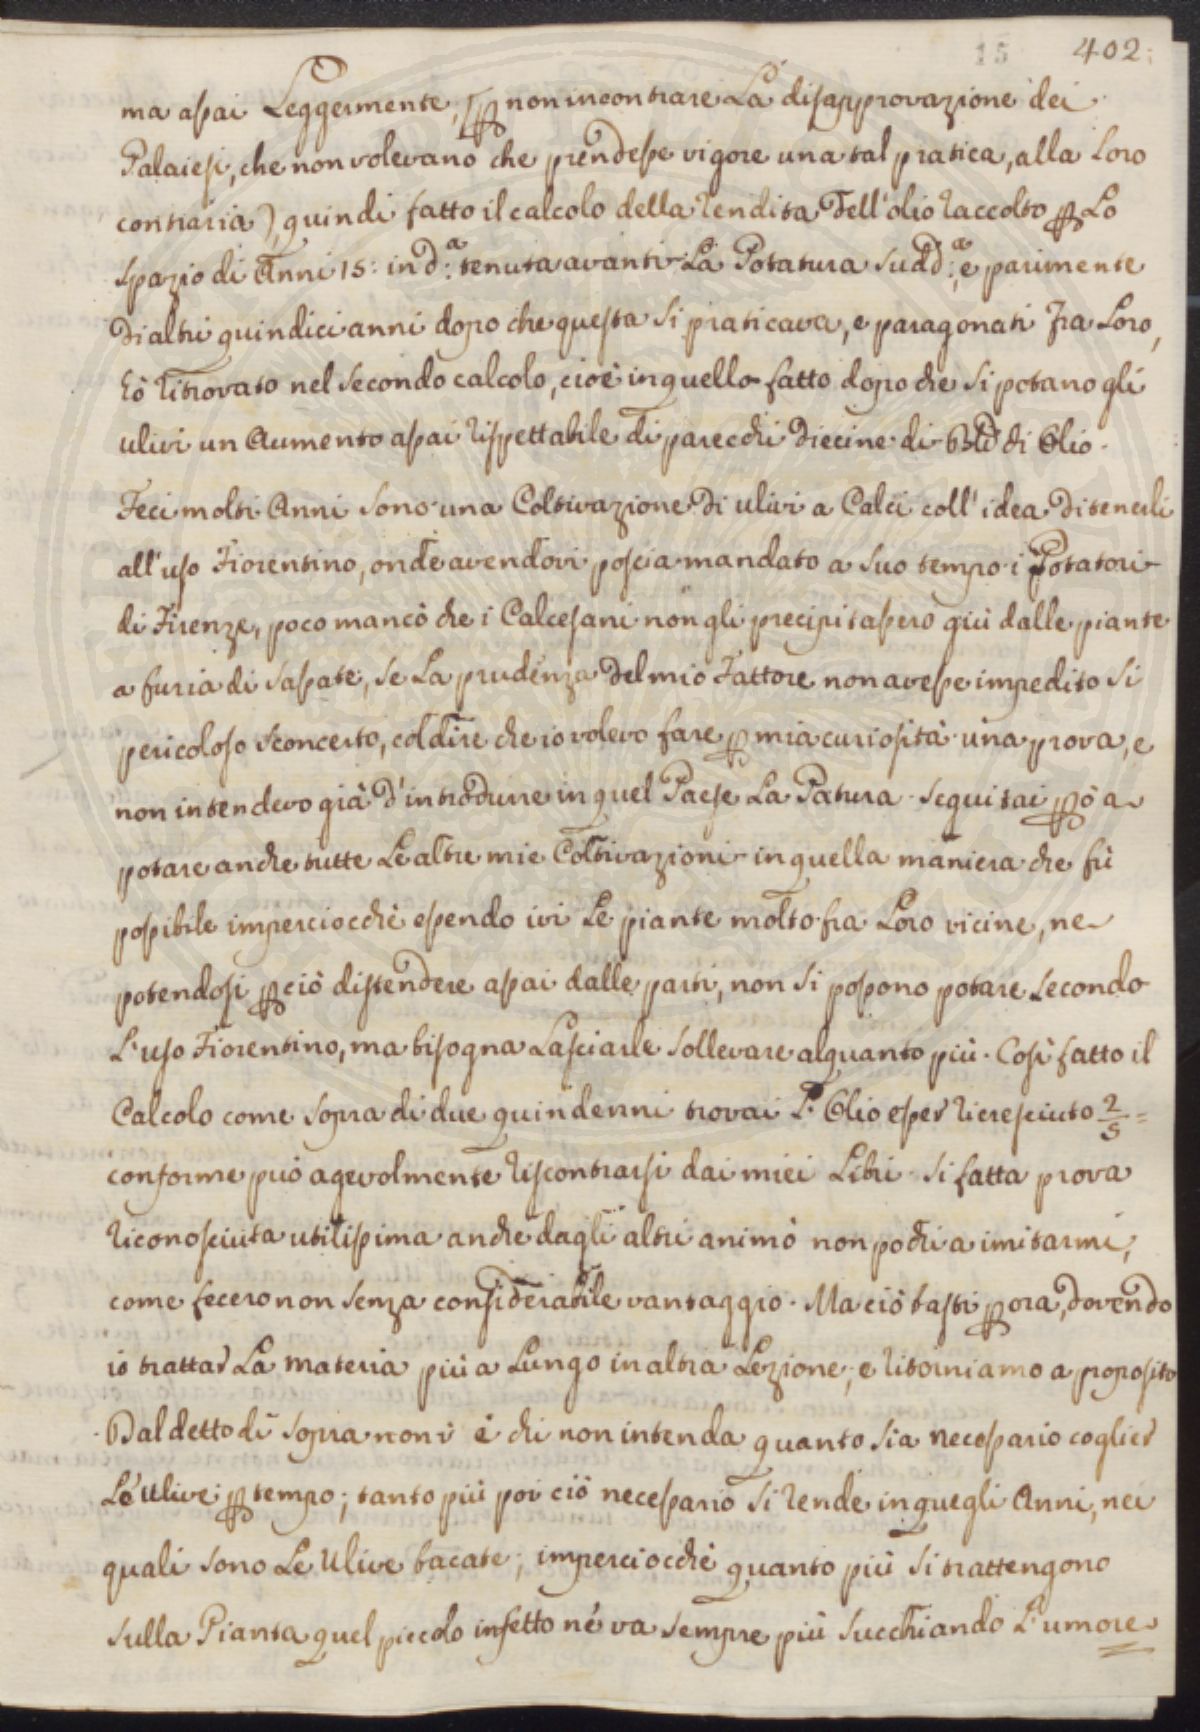 15 402:
ma assai Leggermente, (p non incontrare La disapprovazione dei
Palaiesi, che non volevano che prendesse vigore una tal pratica, alla Loro
contraria), quindi fatto il calcolo della rendita dell'olio raccolto p Lo
spazio di Anni 15: in d:ᵃ tenuta avanti La Potatura sudd:ᵃ, e parimente
di altri quindici anni dopo che questa si praticava, e paragonati fra Loro,
hò ritrovato nel secondo calcolo, cioè in quello fatto dopo che si potano gli
ulivi un Aumento assai rispettabile di parecchi diecine di di Olio.
Feci molti Anni sono una Coltivazione di ulivi a Calci coll'idea di tenerli
all'uso Fiorentino, onde avendovi poscia mandato a suo tempo i Potatori
di Firenze, poco mancò che i Calcesani non gli precipitassero giù dalle piante
a furia di sassate, se La prudenza del mio Fattore non avesse impedito si
pericoloso sconcerto, col dire che io volevo fare p mia curiosità una prova, e
non intendevo già d'introdurre in quel Paese La Patura. Seguitai pò a
potare anche tutte Le altre mie Coltivazioni in quella maniera che fù
possibile imperciocchè essendo ivi Le piante molto fra Loro vicine, ne
potendosi pciò distendere assai dalle parti, non si possono potare secondo
L'uso Fiorentino, ma bisogna Lasciarle sollevare alquanto più. Così fatto il
Calcolo come sopra di due quindenni trovai L'Olio esser ricresciuto 2/5
conforme può agevolmente riscontrarsi dai miei Libri. Si fatta prova
riconosciuta utilissima anche dagli altri animò non pochi a imitarmi,
come fecero non senza considerabile vantaggio. Ma ciò basti p ora, dovendo
io trattar La materia più a Lungo in altra Lezione; e ritorniamo a proposito
Dal detto di sopra non v'è chi non intenda quanto sia necessario coglier
Le ulive p tempo; tanto più poi ciò necessario si rende in quegli Anni, nei
quali sono Le Ulive bacate; imperciocchè quanto più si trattengono
sulla Pianta quel piccolo insetto ne va sempre più succhiando L'umore